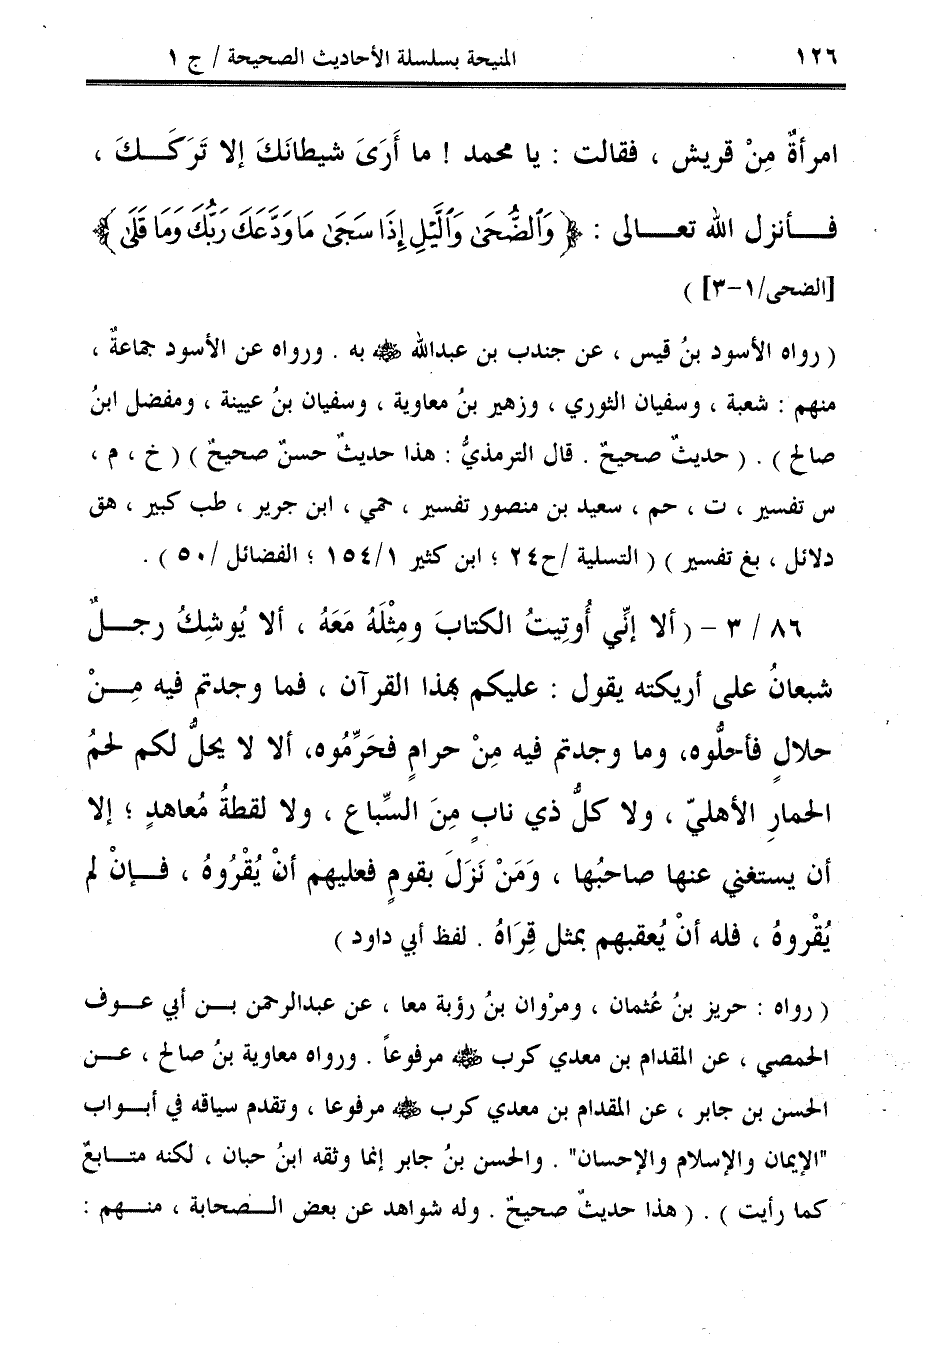 ١٢٦ المنيحة بسلسلة الأحاديث الصحيحة / ج ١
امرأةٌ مِنْ قريش ، فقالت : يا محمد ! ما أَرَى شيطانَكَ إلا تَرَكَـــكَ ،
فــــأنزل الله تعــــالى : ﴿ وَٱلضُّحَىٰ وَٱلَّيْلِ إِذَا سَجَىٰ مَا وَدَّعَكَ رَبُّكَ وَمَا قَلَىٰ ﴾
[الضحى/١-٣] )
( رواه الأسود بنُ قيس ، عن جندب بن عبدالله ﷺ به . ورواه عن الأسود جماعةٌ ،
منهم : شعبة ، وسفيان الثوري ، وزهير بنُ معاوية ، وسفيان بنُ عيينة ، ومفضل ابنُ
صالح ) . ( حديثٌ صحيحٌ . قال الترمذيُّ : هذا حديثٌ حسنٌ صحيحٌ ) ( خ ، م ،
س تفسير ، ت ، حم ، سعيد بن منصور تفسير ، حمي ، ابن جرير ، طب كبير ، هق
دلائل ، بغ تفسير ) ( التسلية /ح٢٤ ؛ ابن كثير ١٥٤/١ ؛ الفضائل /٥٠ ) .
٨٦ / ٣ - ( ألا إنِّي أُوتِيتُ الكتابَ ومِثْلَهُ مَعَهُ ، ألا يُوشِكُ رجــلٌ
شبعانُ على أريكته يقول : عليكم بهذا القرآن ، فما وجدتم فيه مِـــنْ
حلالٍ فأحلُّوه، وما وجدتم فيه مِنْ حرامٍ فحَرِّمُوه، ألا لا يحلُّ لكم لحمُ
الحمارِ الأهليّ ، ولا كلُّ ذي نابٍ مِنَ السِّباع ، ولا لقطةُ مُعاهدٍ ؛ إلا
أن يستغني عنها صاحبُها ، وَمَنْ نَزَلَ بقومٍ فعليهم أنْ يُقْرُوهُ ، فـــإنْ لم
يُقْروهُ ، فله أنْ يُعقبهم بمثل قِرَاهُ . لفظ أبي داود )
( رواه : حريز بنُ عُثمان ، ومرْوان بنُ رؤبة معا ، عن عبدالرحمن بـــن أبي عـــوف
الحمصي ، عن المقدام بن معدي كرب ﷺ مرفوعاً . ورواه معاوية بنُ صالح ، عـــن
الحسن بن جابر ، عن المقدام بن معدي كرب ﷺ مرفوعا ، وتقدم سياقه في أبـــواب
"الإيمان والإسلام والإحسان" . والحسن بنُ جابر إنما وثقه ابنُ حبان ، لكنه متـــابعٌ
كما رأيت ) . ( هذا حديثٌ صحيحٌ . وله شواهد عن بعض الـــصحابة ، منـــهم :